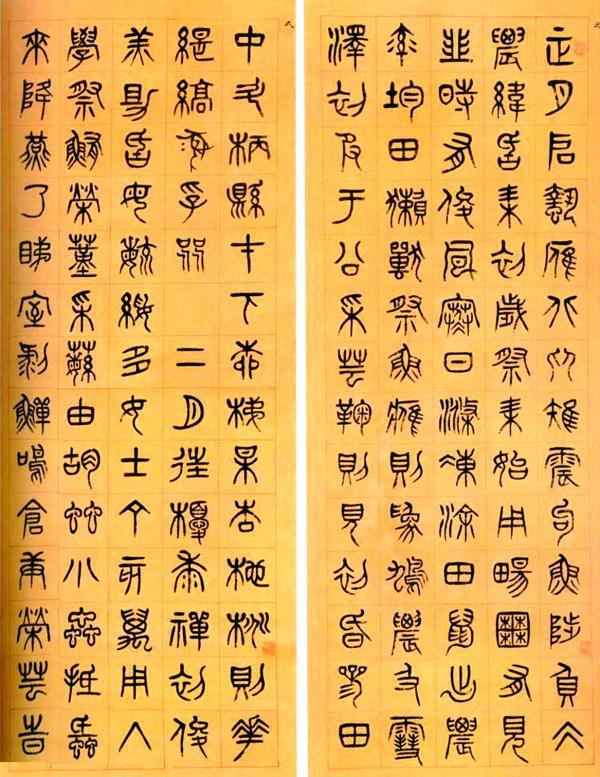 正月启蟄雁北鄉雉震呴魚陟負冰
農緯厥耒初歲祭耒始用暢囿有見
韭時有俊風寒日滌凍涂田鼠出農
率均田獺獻祭魚鷹則為鳩農及雪
澤初服于公采芸鞠則見初昏參田
中斗柄縣才下柳梯某杏杝桃則華
緹縞孚粥 二月往耰黍禪初俊
羔助厥母粥綏多女士丁亥萬用入
學祭鮪榮菫采蘩由胡蝝小蟲抵蚳
來降燕乃睇室剝鱓鳴倉庚榮芸旹